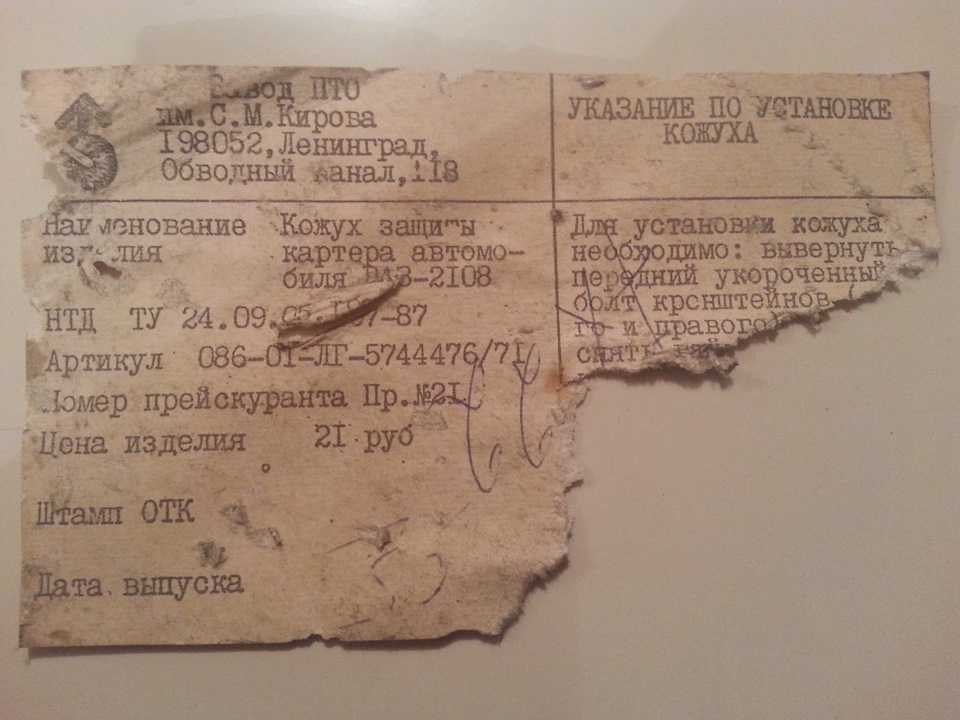 Завод ПТО
им.С.М.Кирова
I98052,Ленинград,
Обводный канал,II8
УКАЗАНИЕ ПО УСТАНОВКЕ
КОЖУХА
Наименование
изделия
Кожух защиты
картера автомо-
биля ВАЗ-2I08
НТД ТУ 24.09.
-87
Артикул 086-0I-ЛГ-5744476/7I
Номер прейскуранта Пр.№2I
Цена изделия 2I руб
Штамп ОТК
Дата выпуска
Для установки кожуха
необходимо: вывернуть
передний укороченный
болт крснштейнов (
го и правого)
снять гай